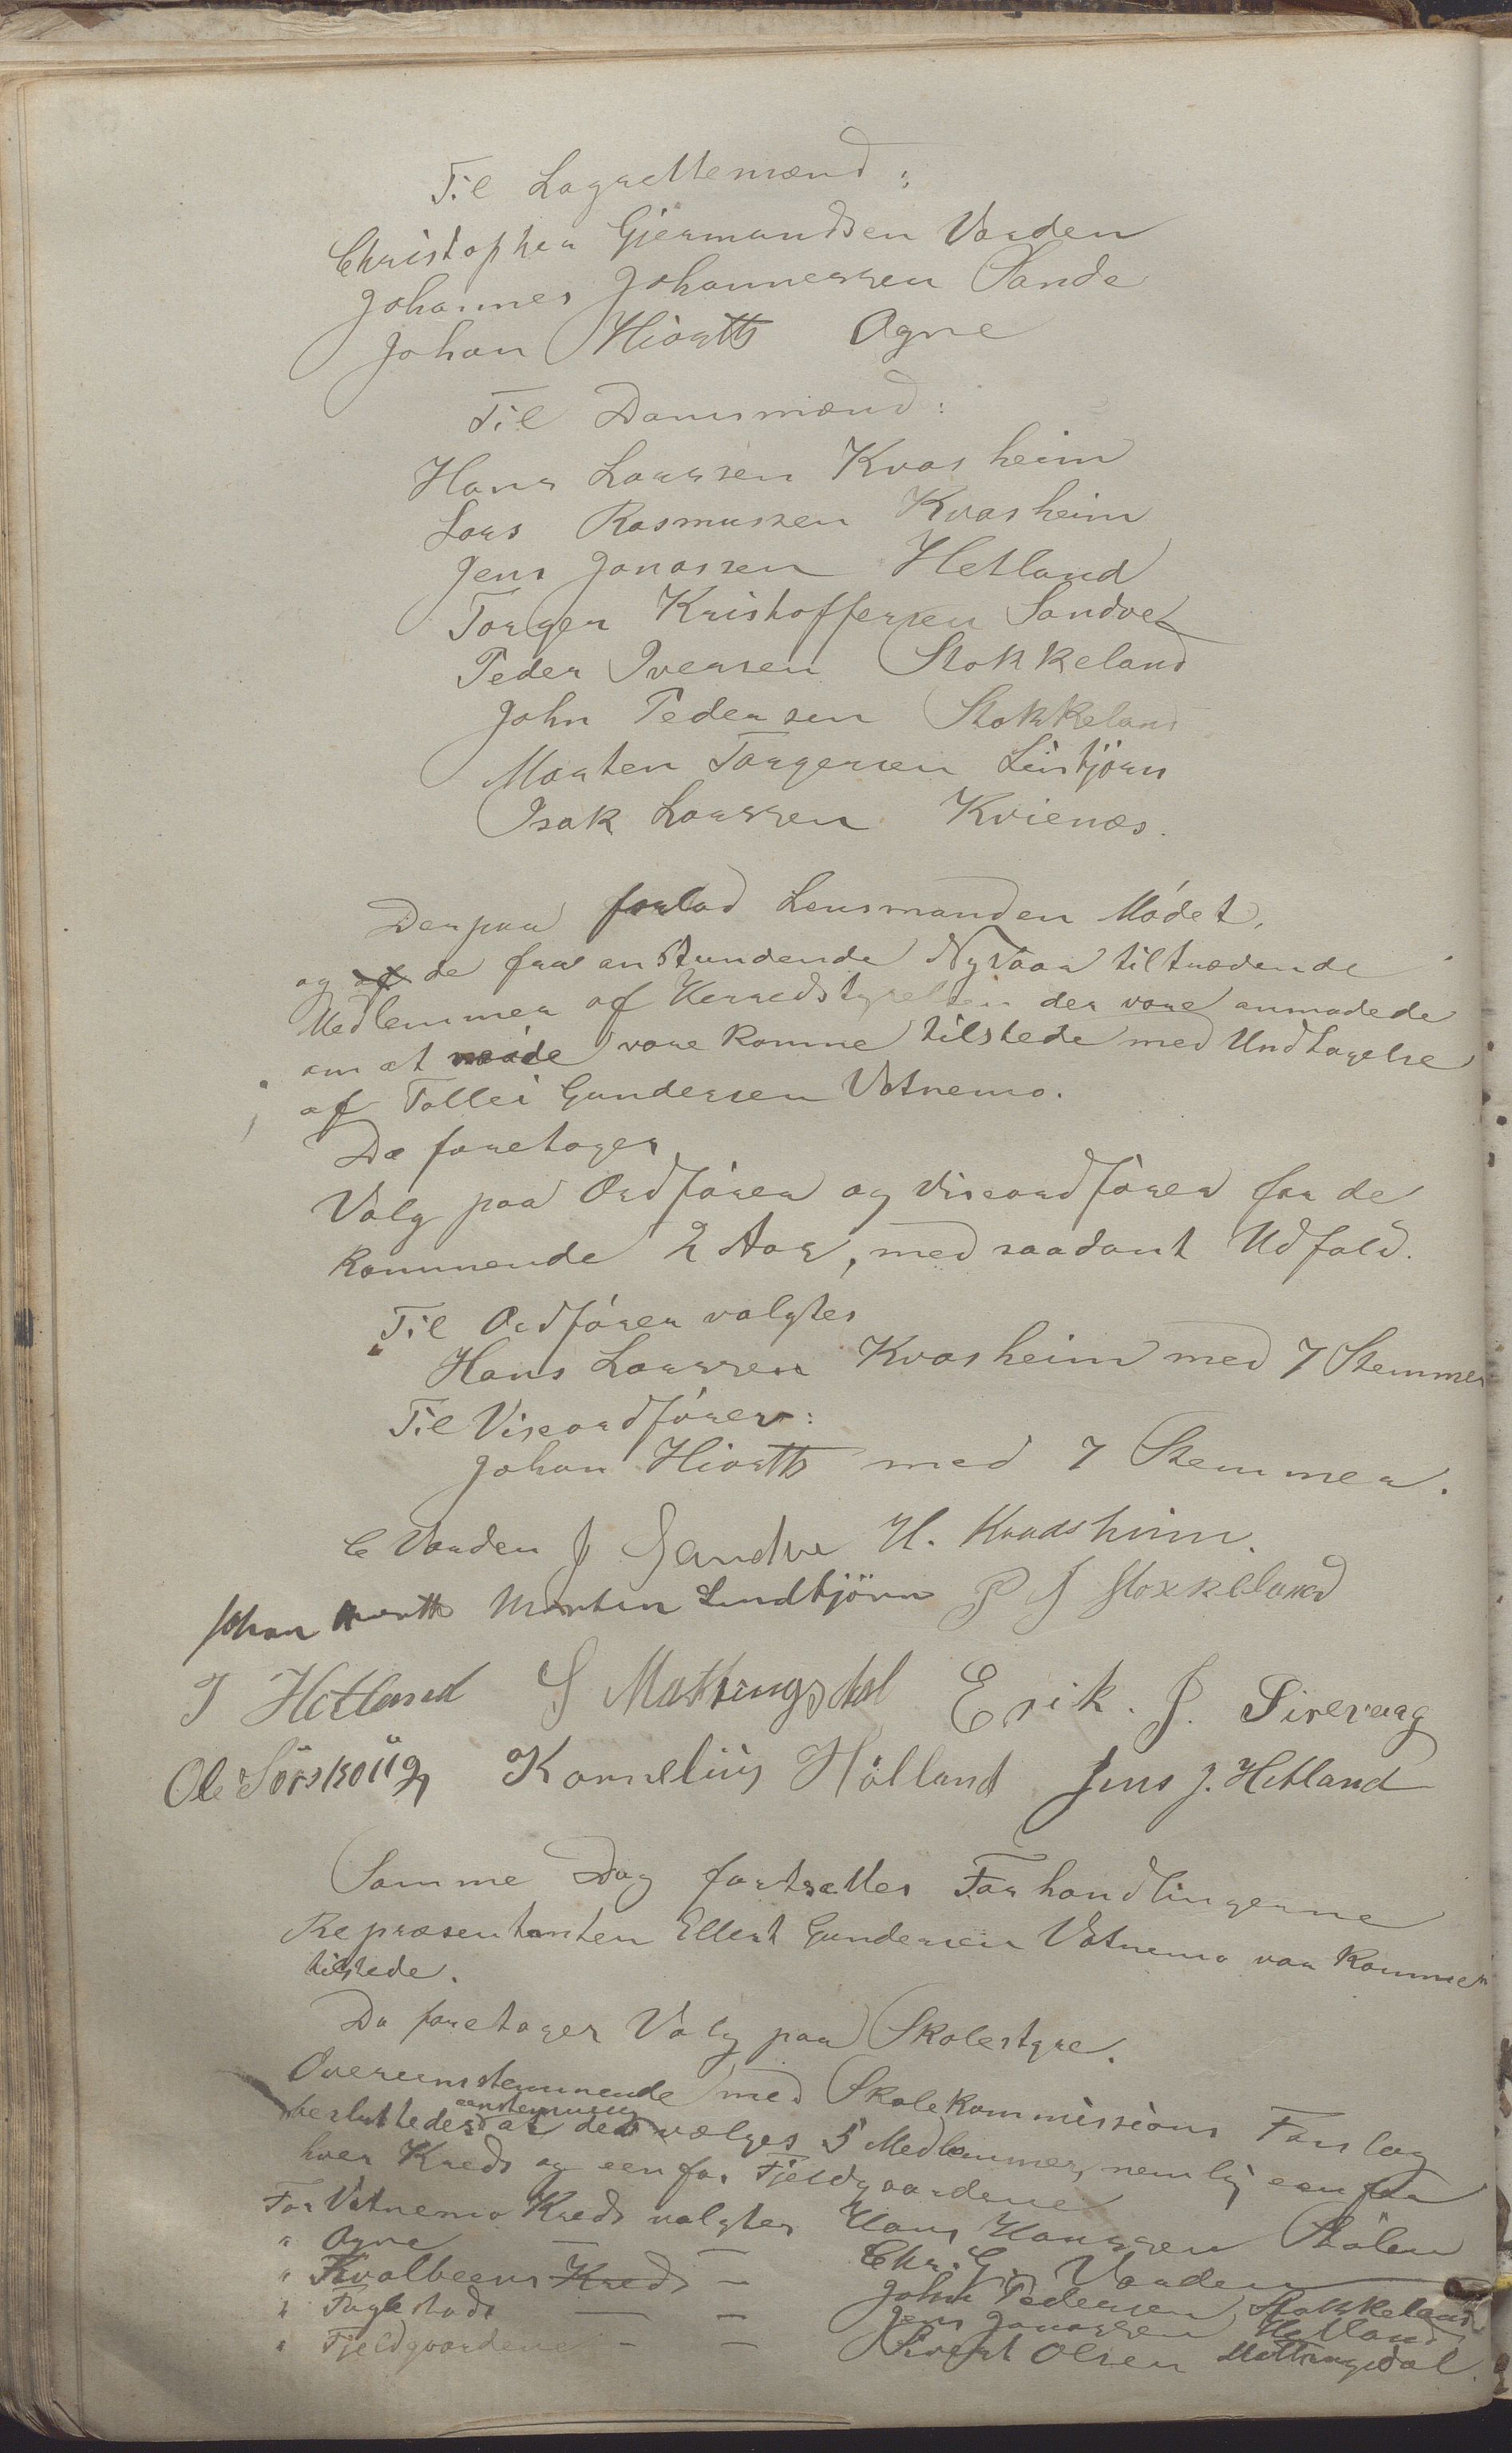 Til Lagrettemænd:
Christopher Gjermundsen Varden
Johannes Johannessen Sande
Johan Hiorth Ogne
Til Domsmænd:
Hans Larssen Kvasheim
Lars Rasmussen Kvasheim
Jens Jonassen Hetland
Torger Kristoffersen Sandve
Peder Iversen Stokkeland
John Pedersen Stokkeland
Morten Torgersen Lintjørn
Isak Larssen Kvienæs.
Derpaa forlod Lensmanden Mødet,
og af de fra anstundende Nytaar tiltrædende
Medlemmer af Herredstyrelsen der vare anmodede
om at møde vare komne tilstede med Undtagelse
af Tollei Gundersen Votnemo.
Da foretoges
Valg paa Ordfører og Viseordfører for de
kommende 2 Aar, med saadant Udfald.
Til Ordfører valgtes
Hans Larssen Kvasheim med 7 Stemmer
Til Viseordfører:
Johan Hiorth med 7 Stemmer.
C Varden J Sandve H. Kvadsheim.
Johan Hiorth Morten Lindtjörn P J Stokkeland
J Hetland S Mattingsdal Erik. J. Sirevaag
Ole Sörskoug Kornelius Hölland Jens J. Hetland
Samme Dag fortsattes Forhandlingerne
Repræsentanten Ellert Gundersen Votnemo var kommen
tilstede.
Da foretoges Valg paa Skolestyre.
Overeensstemmende med Skolekommissions Forslag
besluttedes eenstemmig at der vælges 5 Medlemmer, nemlig een for
hver Kreds og een for Fjeldgaardene
For Votnemo Kreds valgtes Hans Hanssen Stølen
" Ogne — Chr. G. Varden
" Kvalbeens Kreds — John Pedersen Stokkeland
" Fuglestads — — Jens Jonassen Hetland
" Fjeldgaardene — — Sivert Olsen Mattingsdal.